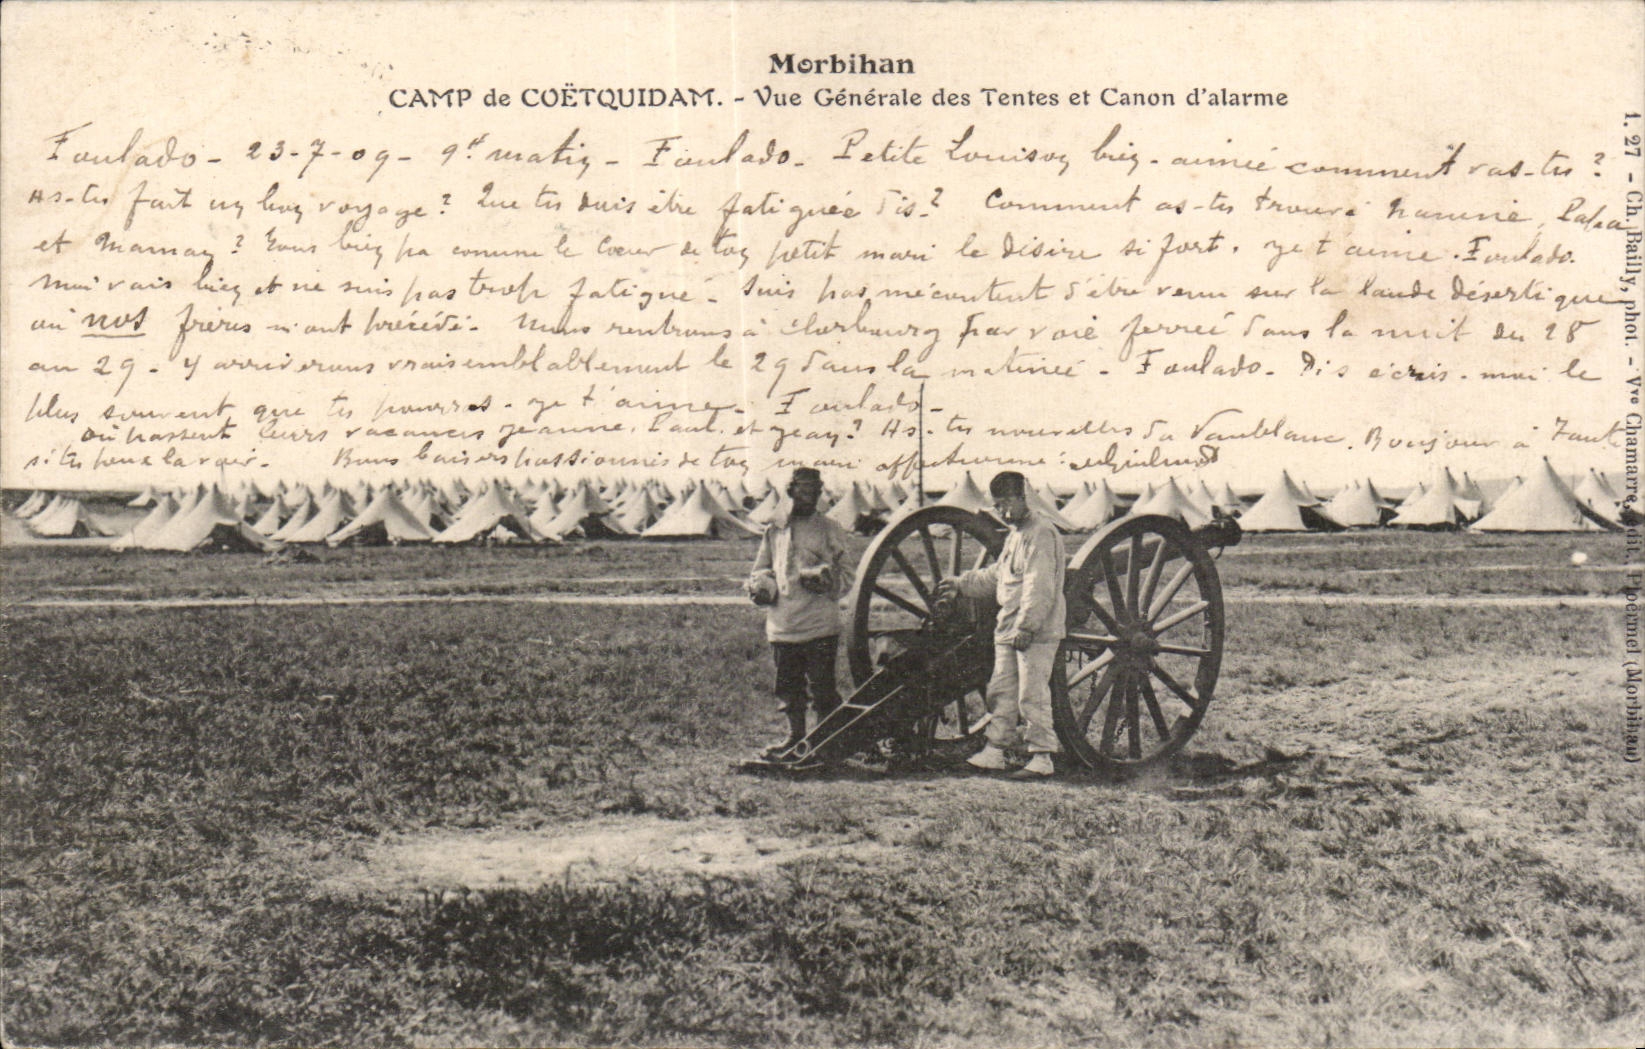 Morbihan
CAMP de COËTQUIDAM. - Vue Générale des Tentes et Canon d'alarme
Foulado - 23-7-09 - 9h matin - Foulado - Petite Louison bien-aimée comment vas-tu ?
As-tu fait un bon voyage ? Que tu dois être fatiguée dis ? Comment as-tu trouvé Papa
et Maman ? Tous bien pa comme le Cœur de ton petit mari le désire si fort. Je t'aime. Foulado.
Moi vais bien et ne suis pas trop fatigué - Suis pas mécontent d'être venu sur la lande désertique
où nos frères m'ont précédé - Nous rentrons à Cherbourg par voie ferrée dans la nuit du 28
au 29 - Y arriverons vraisemblablement le 29 dans la matinée - Foulado - Dis écris-moi le
plus souvent que tu pourras - Je t'aime - Foulado -
où passent leurs vacances Jeanne, Paul et Jean ? As-tu nouvelles Vaublanc. Bonjour à Tante
si tu peux la voir - Bons baisers passionnés de ton mari
1. 27 - Ch. Bailly, phot. - Vve Chamarre, édit., Ploërmel (Morbihan)